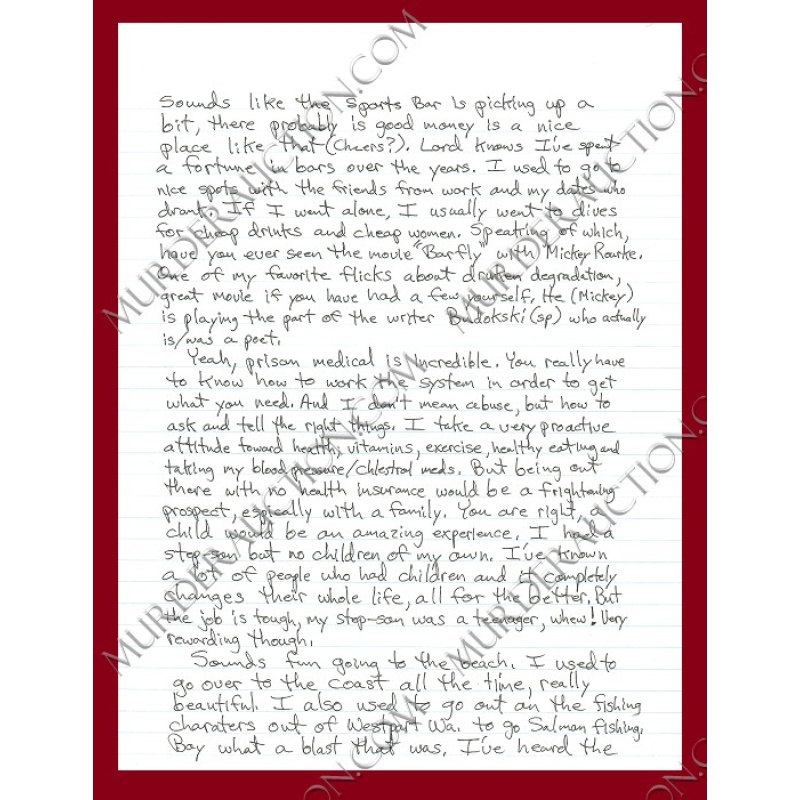 Sounds like the Sports Bar is picking up a
bit, there probably is good money is a nice
place like that (Cheers?). Lord knows I've spent
a fortune in bars over the years. I used to go to
nice spots with the friends from work and my dates who
drank. If I went alone, I usually went to dives
for cheap drinks and cheap women. Speaking of which,
have you ever seen the movie "Barfly" with Mickey Rourke.
One of my favorite flicks about drunken degradation,
great movie if you have had a few yourself. He (Mickey)
is playing the part of the writer Budokski (sp) who actually
is/was a poet.
Yeah, prison medical is incredible. You really have
to know how to work the system in order to get
what you need. And I don't mean abuse, but how to
ask and tell the right things. I take a very proactive
attitude toward health, vitamins, exercise, healthy eating and
taking my blood pressure/chlestral meds. But being out
there with no health insurance would be a frightening
prospect, espically with a family. You are right, a
child would be an amazing experience. I had a
step-son but no children of my own. I've known
a lot of people who had children and it completely
changes their whole life, all for the better. But
the job is tough, my step-son was a teenager, whew! Very
rewarding though.
Sounds fun going to the beach. I used to
go over to the coast all the time, really
beautiful. I also used to go out on the fishing
charaters out of Westport Wa. to go Salmon fishing.
Boy what a blast that was. I've heard the
MURDERAUCTION.COM
MURDERAUCTION.COM
MURDERAUCTION.COM
MURDERAUCTION.COM